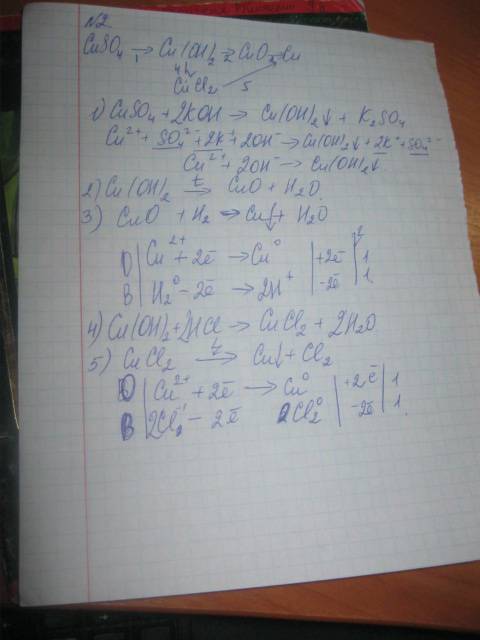 №2.
CuSO₄ →₁ Cu(OH)₂ →₂ CuO →₃ Cu
4↓ CuCl₂ 5
1) CuSO₄ + 2KOH → Cu(OH)₂↓ + K₂SO₄
Cu²⁺ + SO₄²⁻ + 2K⁺ + 2OH⁻ → Cu(OH)₂↓ + 2K⁺ + SO₄²⁻
Cu²⁺ + 2OH⁻ → Cu(OH)₂↓
2) Cu(OH)₂ →ᵗ CuO + H₂O
3) CuO + H₂ → Cu↓ + H₂O
O | Cu²⁺ + 2ē → Cu⁰ | +2ē | 1
B | H₂⁰ − 2ē → 2H⁺ | −2ē | 1
4) Cu(OH)₂ + 2HCl → CuCl₂ + 2H₂O
5) CuCl₂ → Cu↓ + Cl₂
O | Cu²⁺ + 2ē → Cu⁰ | +2ē | 1
B | 2Cl⁻¹ − 2ē 2Cl₂⁰ | −2ē | 1